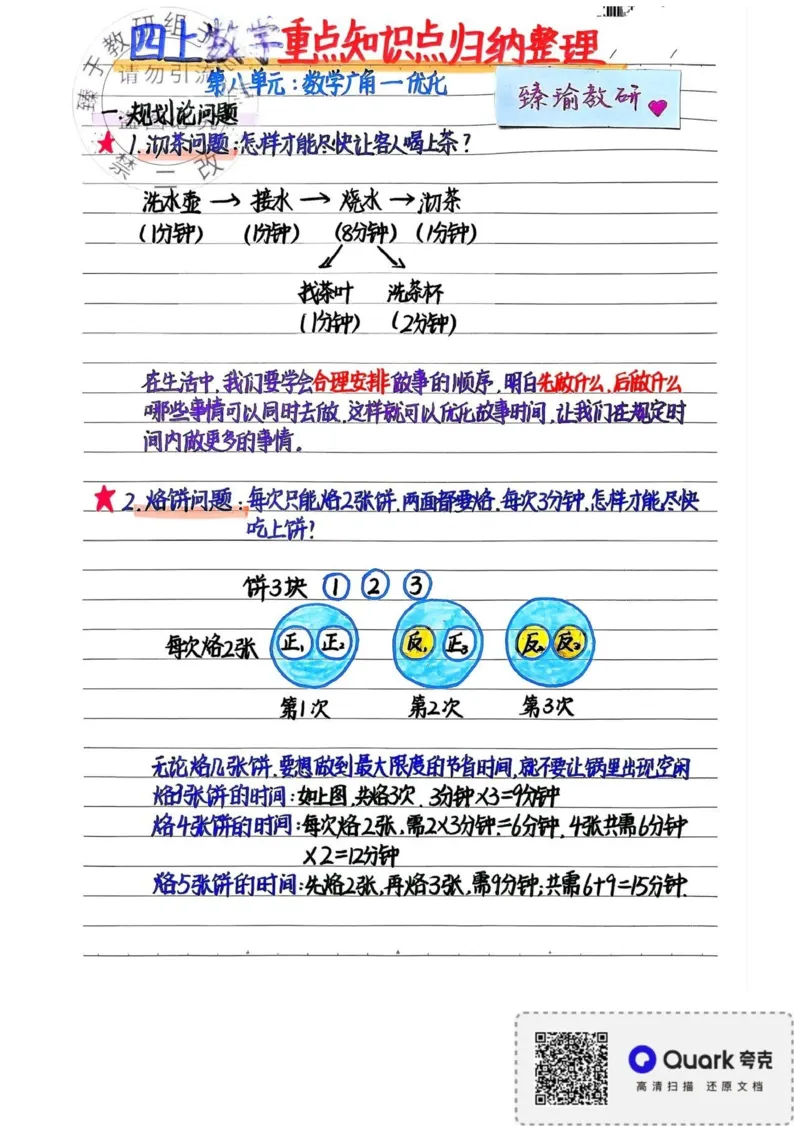 四上数学重点知识点归纳整理
第八单元:数学广角一优化
臻瑜教研
请勿引流
禁二改
一.规划论问题
1.沏茶问题:怎样才能尽快让客人喝上茶?
洗水壶→接水→烧水→沏茶
(1分钟) (1分钟) (8分钟) (1分钟)
找茶叶 洗茶杯
(1分钟) (2分钟)
在生活中,我们要学会合理安排做事的顺序,明白先做什么,后做什么
哪些事情可以同时去做,这样就可以优化做事时间,让我们在规定时
间内做更多的事情。
2.烙饼问题:每次只能烙2张饼,两面都要烙,每次3分钟,怎样才能尽快
吃上饼?
饼3块 ① ② ③
每次烙2张 正₁ 正₂ 反₁ 正₃ 反₂ 反₃
第1次 第2次 第3次
无论烙几张饼,要想做到最大限度的节省时间,就不要让锅里出现空闲
烙3张饼的时间:如上图,共烙3次,3分钟×3=9分钟
烙4张饼的时间:每次烙2张,需2×3分钟=6分钟,4张共需6分钟
×2=12分钟
烙5张饼的时间:先烙2张,再烙3张,需9分钟;共需6+9=15分钟.
Quark夸克
高清扫描 还原文档